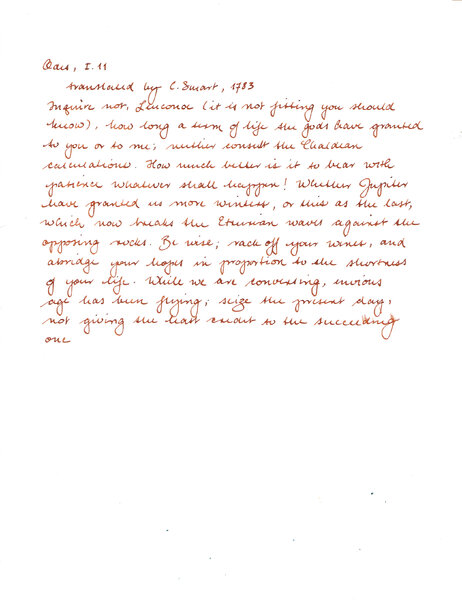 Odes, I.11
translated by C. Smart, 1783
Inquire not, Leuconoe (it is not fitting you should
know), how long a term of life the gods have granted
to you or to me; neither consult the Chaldean
calculations. How much better is it to bear with
patience whatever shall happen! Whether Jupiter
have granted us more winters, or this as the last,
which now breaks the Etrurian waves against the
opposing rocks. Be wise; rack off your wines, and
abridge your hopes in proportion to the shortness
of your life. While we are conversing, envious
age has been flying; seize the present day,
not giving the least credit to the succeeding
one